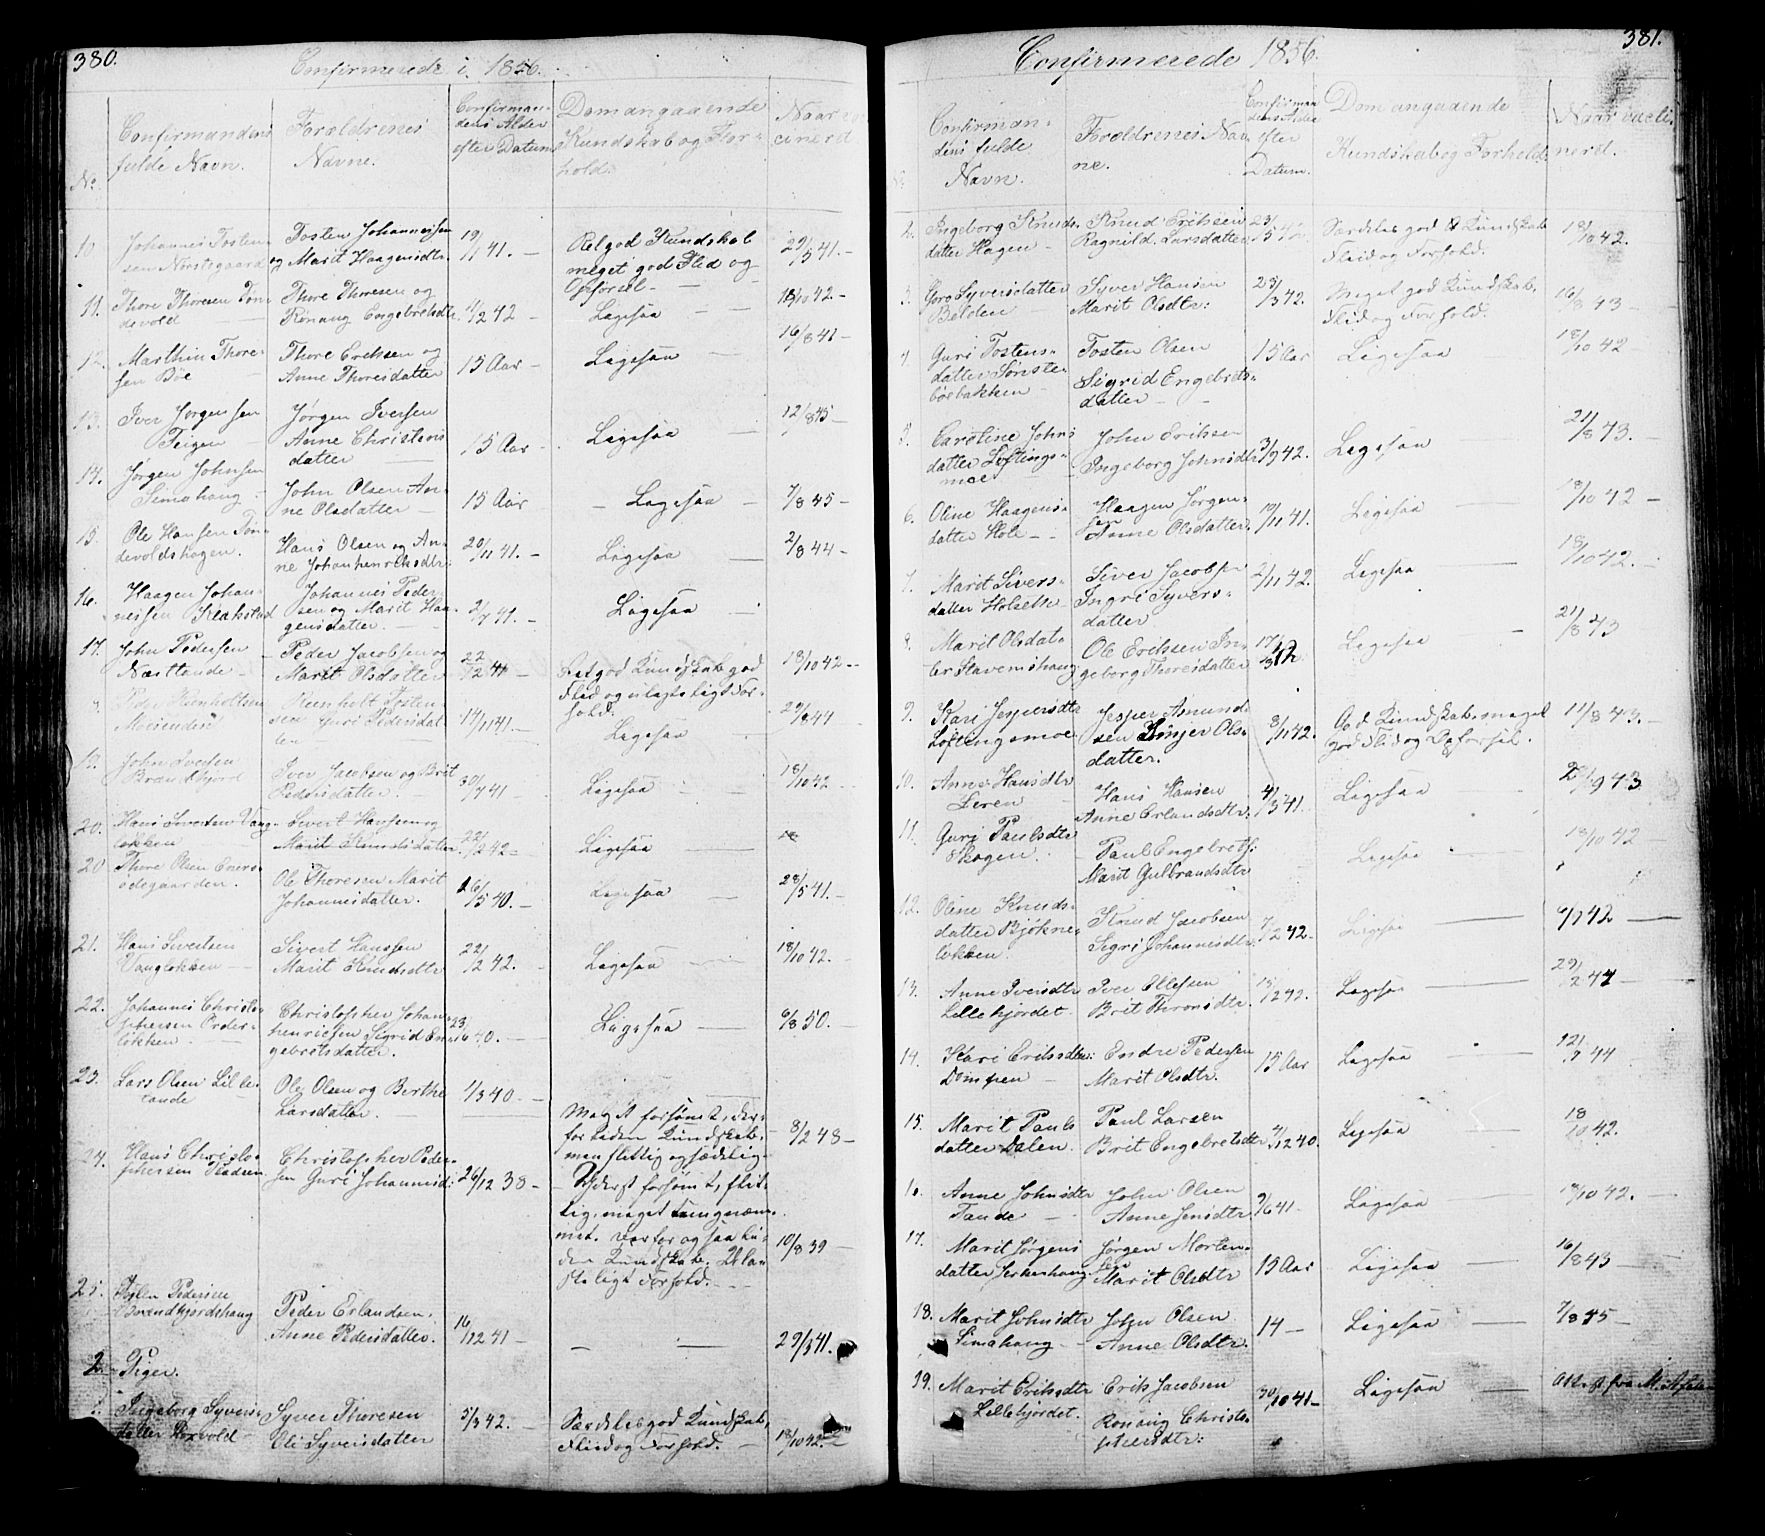 380.
Confirmerede i 1856.
No.
Confirmandens
fulde Navn.
Forældrenes
Navne.
Confirman-
dens Alder
efter Datum
Dom angaaende
Kundskab og For-
hold.
Naar va-
cineret
10
Johannes Tosten-
sen Norstegaard
Tosten Johannessen
og Marit Haagensdtr.
19/1 41. -
Ret god Kundskab
meget god Flid og
Opførsel -
29/5 41. -
11.
Thore Thoresen Tøn-
devold
Thore Thoresen og
Rønaug Engebretsdtr
4/2 42
Ligesaa
18/10 42 -
12.
Marthin Thore-
sen Bøe
Thore Eriksen og
Anne Thoresdatter
15 Aar -
Ligesaa
16/8 41 -
13.
Iver Jørgensen
Teigen
Jørgen Iversen
Anne Christens
datter
15 Aar
Ligesaa
12/8 45 -
14.
Jørgen Johnsen
Simahaug
John Olsen An-
ne Olsdatter
15 Aar
Ligesaa
7/8 45 -
15.
Ole Hansen Tøn-
devoldshagen.
Hans Olsen og An-
ne Johanhenriksdtr.
20/11 41. -
Ligesaa
2/8 44 -
16.
Haagen Johan-
nessen Klakstad
Johannes Peder-
sen og Marit Haa-
gensdatter.
2/7 41. -
Ligesaa
17.
John Pedersen
Næsttande
Peder Jacobsen og
Marit Olsdatter
22/12 41 -
Ret god Kundskab god
Flid og ulasteligt For-
hold.
18/10 42 -
Reenholt Tosten-
sen Guri Pedersdat-
ter
14/11 41. -
Ligesaa
29/8 44
19.
John Iversen
Brandhjord
Iver Jacobsen og Brit
Pedersdatter
30/7 41
Ligesaa
18/10 42
20.
Hans Sivertsen Vang-
løkken
Sivert Hansen og
Marit Knudsdatter
22/2 42 -
Ligesaa
20
Thore Olsen Eners-
ødegaarden.
Ole Thoresen Marit
Johannesdatter.
26/5 40. -
Ligesaa
28/5 41. -
21.
Hans Sivertsen
Vangløkken
Sivert Hanssen
Marit Knudsdtr
22/2 42.
Ligesaa
18/10 42.
22.
Johannes Christo-
phersen
løkken
Christopher Johan-
henriksen Sigrid En-
gebretsdatter.
23/6 40. -
Ligesaa
6/8 50. -
23.
Lars Olsen Lille-
tande
Ole Olsen og Berthe
Larsdatter.
1/3 40 -
Meget forsømt, der-
for liden Kundskab,
men flittig og sædelig -
8/2 48 -
24.
Hans Christo-
phersen Pladsen
Christopher Peder-
sen Guri Johannesdtr
26/12 38 -
Yderst forsømt, flit-
tig, meget tungnæm-
met. Derfor og saa li-
den Kundskab. Ula-
steligt Forhold.
10/8 39 -
25.
Pedersen
Brandhjordshaug
Peder Erlandsen.
Anne Pedersdatter.
16/12 41 -
29/5 41.
2 Piger.
1.
Ingeborg Syvers-
datter Roxvold
Syver Thoresen
Eli Syversdatter
5/3 42. -
Særdeles god Kundskab,
Flid og Forhold.
18/10 42.
381.
Confirmerede 1856.
Confirman-
dens fulde
Navn.
Forældrenes Nav-
ne.
Confirman
dens Alder
efter
Datum.
Dom angaaende
Kundskab og Forhold.
Naar vacci-
neret.
2.
Ingeborg Knuds-
datter Hagen
Knud Eriksen
Ragnild Larsdatter
Særdeles god Kundskab
Flid og Forhold.
18/10 42.
3.
Goro Syversdatter
Belden
Syver Hansen
Marit Olsdtr.
23/3 42.
Meget god Kundskab,
Flid og Forhold.
16/8 43
4
Guri Tostens-
datter Sønste-
bøebakken
Tosten Olsen
Sigrid Engebrets-
datter
15 Aar
Ligesaa
18/10 42
5.
Caroline Johns
datter Løftings-
moe
John Eriksen
Ingeborg Johnsdtr
3/9 42.
Ligesaa
21/8 43.
6.
Oline Haagens-
datter Hole
Haagen Jørgen-
sen Anne Olsdatter.
19/11 41.
Ligesaa
18/10 42
7.
Marit Sivers-
datter Holsette
Siver Jacobsen
Ingri Syvers-
datter
2/11 42.
Ligesaa
18/10 42.
8.
Marit Olsdat-
ter Stavenshaug
Ole Eriksen In-
geborg Thoresdatter
Ligesaa
21/8 43
9.
Kari Jespersdtr
Løftingsmoe
Jesper Asmund-
sen Kinjer Ols-
datter.
8/11 42.
God Kundskab, meget
god Flid og Opførsel.
11/8 43.
10.
Anne Hansdtr
Leren
Hans Hansen
Anne Erlandsdtr.
4/3 41.
Ligesaa
11.
Guri Paulsdtr
Skogen
Paul Engebretsen
Marit Gulbrandsdtr
Ligesaa
18/10 42
12.
Oline Knuds-
datter Bjørkne-
løkken
Knud Jacobsen
Sigri Johannesdtr.
7/2 42.
Ligesaa
13.
Anne Iversdtr
Lillehjordet
Iver Ellefsen
Brit Thronsdtr.
13/2 42.
Ligesaa
14.
Kari Eriksdtr.
Dompen
Endre Pedersen
Marit Olsdtr.
15 Aar
Ligesaa
15.
Marit Pauls
datter Dalen.
Paul Larsen
Brit Engebretsdtr
4/12 40.
Ligesaa
18/10 42.
16.
Anne Johnsdtr
Tande
John Olsen
Anne Jensdtr.
9/6 41
Ligesaa
18/10 42.
17.
Marit Jørgens
datter Jerkenhaug
Jørgen Morten-
sen Marit Olsdtr
15 Aar
Ligesaa
16/8 43
18.
Marit Johnsdtr
Simahaug
John Olsen
Anne Olsdtr.
14
Ligesaa
7/8 45
19.
Marit Eriksdtr
Lillehjordet.
Erik Jacobsen
Ronaug Christo-
phersdtr.
30/10 41
Ligesaa